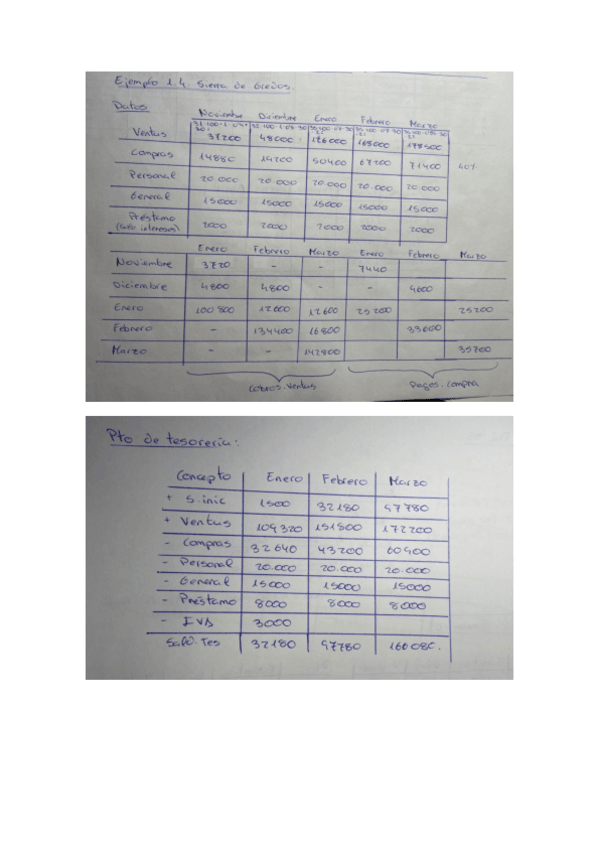 Ejemplo 1.4. Sierra de Gredos.
Datos
Noviembre Diciembre Enero Febrero Marzo
Ventas 37200 48000 126000 168000 178500
Compras 14880 19200 50400 67200 71400 40%
Personal 20.000 20.000 20.000 20.000 20.000
General 15000 15000 15000 15000 15000
Préstamo 2000 2000 2000 2000 2000
(solo intereses)
Enero Febrero Marzo Enero Febrero Marzo
Noviembre 3720 - - 7440
Diciembre 4800 4800 - - 9600
Enero 100800 12600 12600 25200 25200
Febrero - 134400 16800 33600
Marzo - - 142800 35700
Cobros.ventas Pagos.compra
Pto de tesorería:
Concepto Enero Febrero Marzo
+ S.inic 1500 32180 97780
+ Ventas 109320 151800 172200
- Compras 32640 43200 60900
- Personal 20.000 20.000 20.000
- General 15000 15000 15000
- Préstamo 8000 8000 8000
- IVA 3000
Sald.Tes 32180 97780